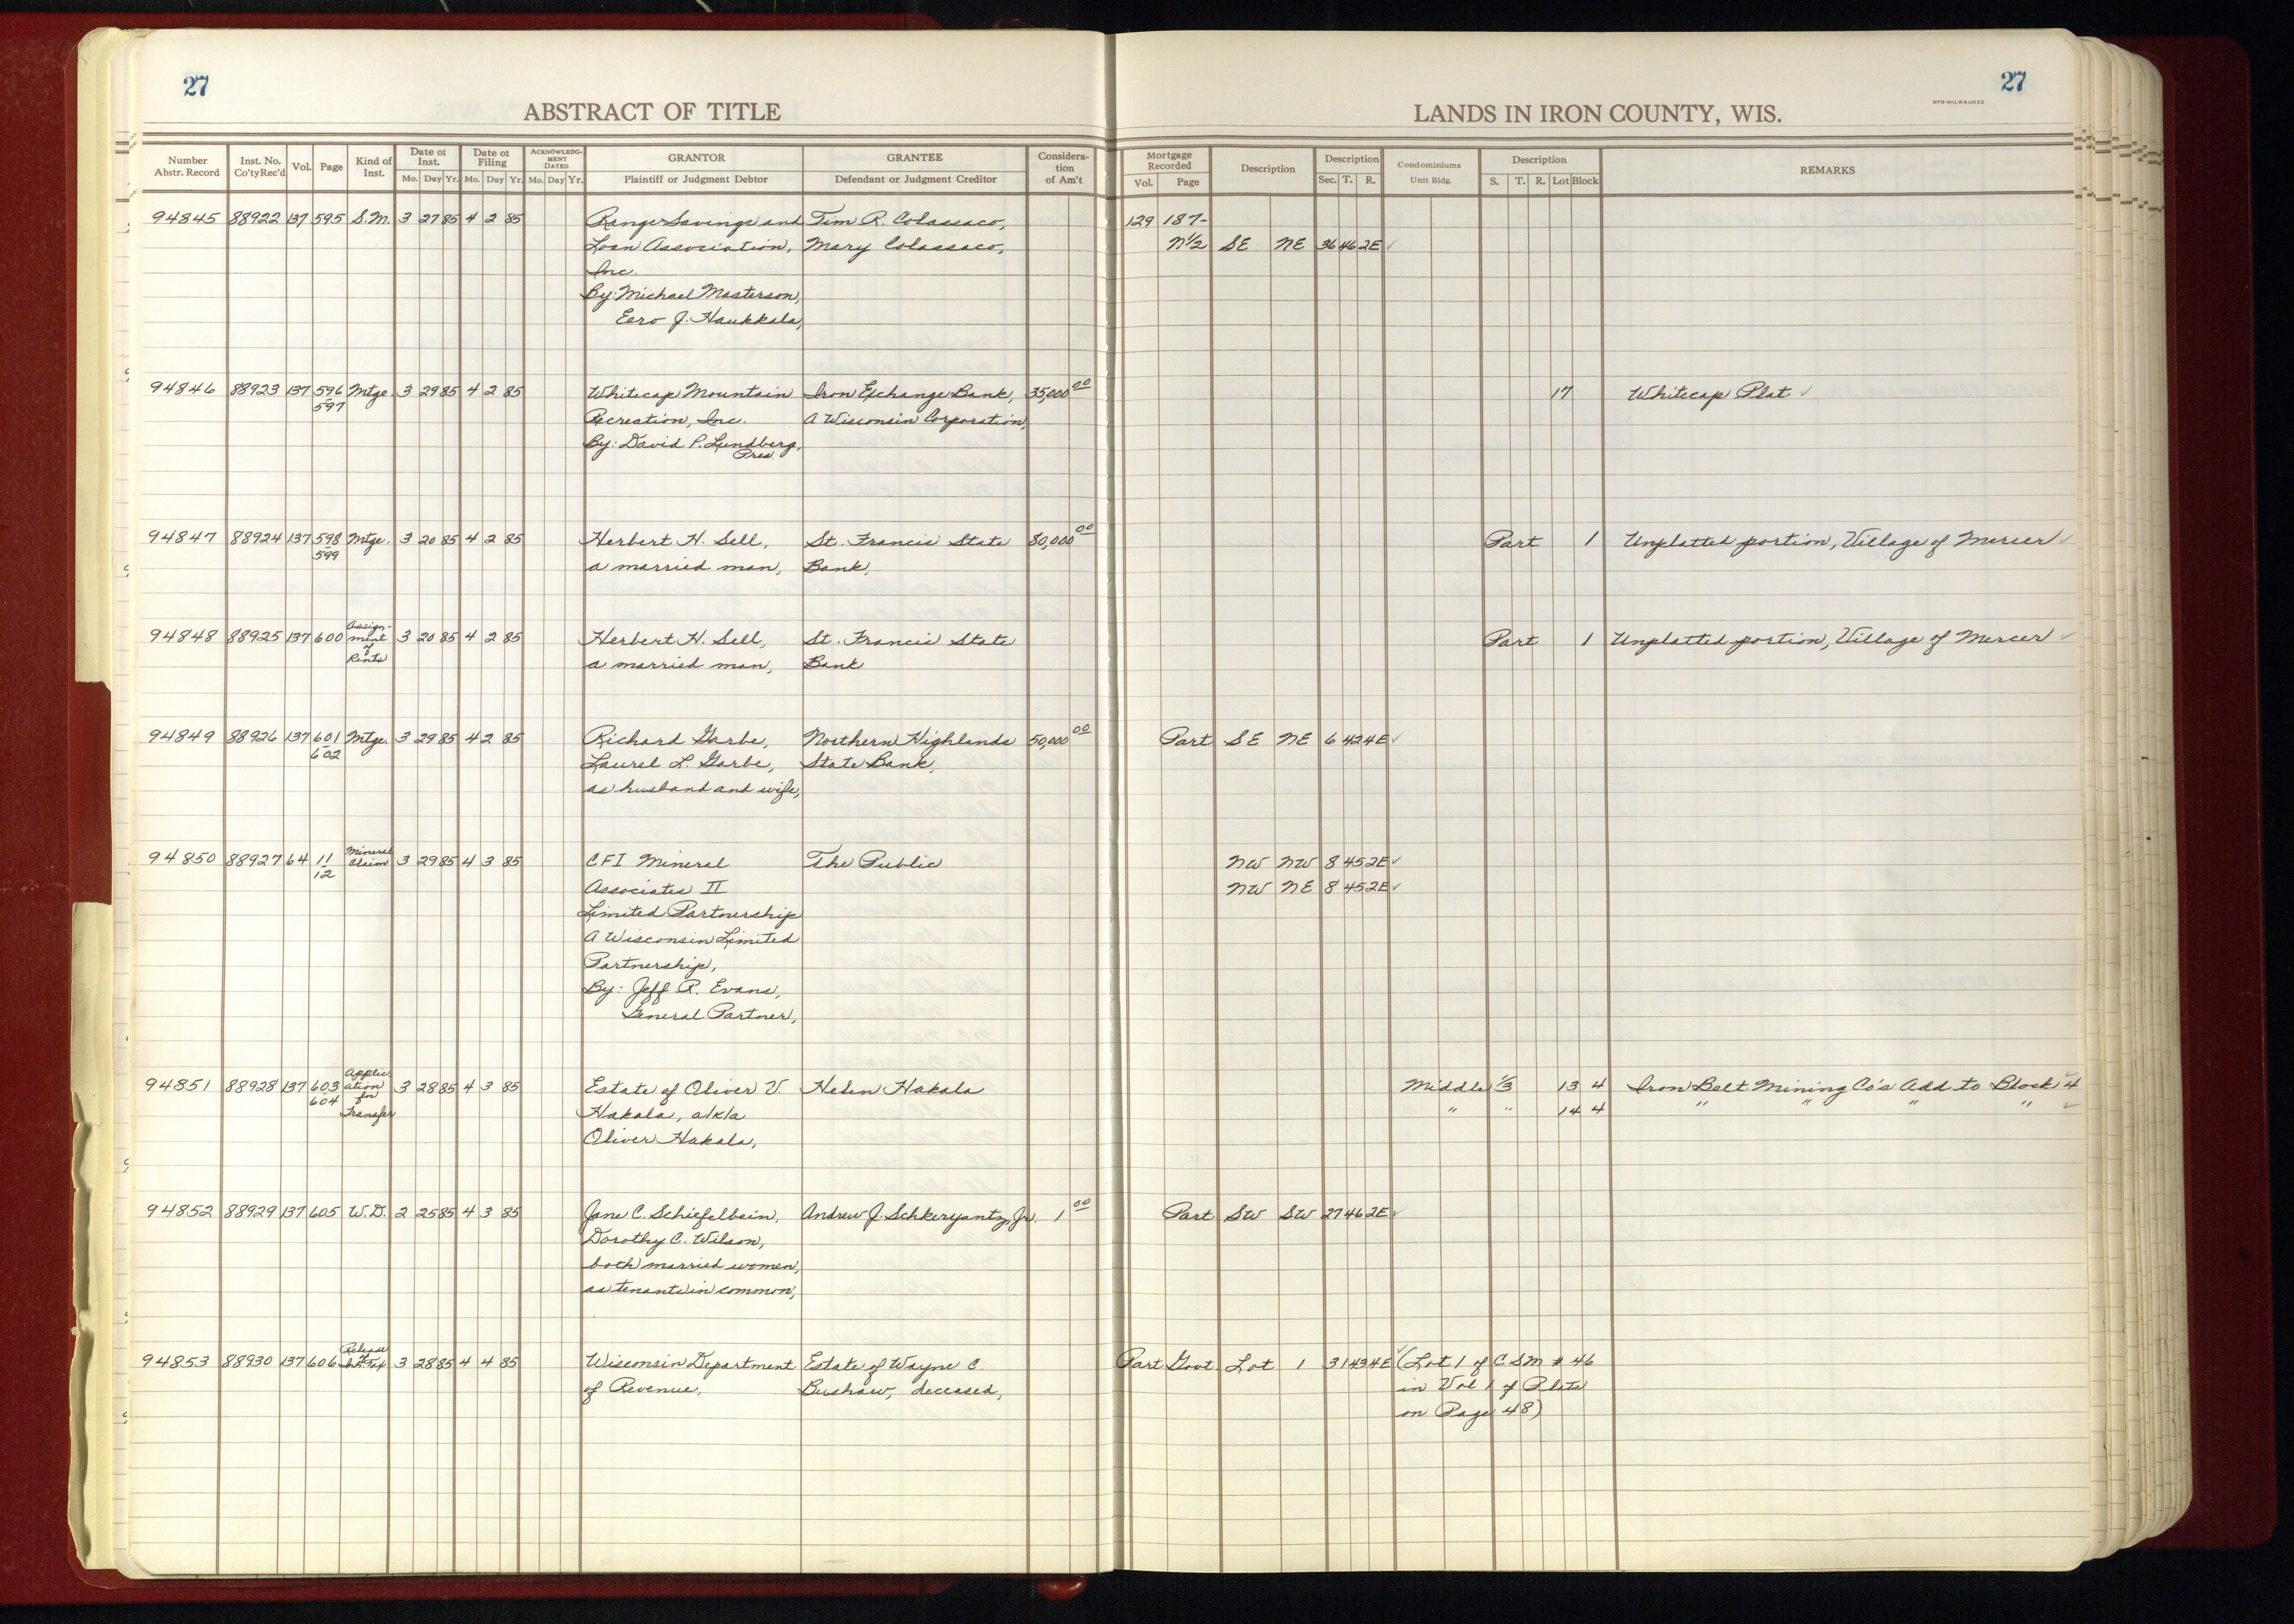 27
27
ABSTRACT OF TITLE
LANDS IN IRON COUNTY, WIS.
WPB-MILWAUKEE
Number Abstr. Record Inst. No. Co'ty Rec'd Vol. Page Kind of Inst. Date of Inst. Mo. Day Yr. Date of Filing Mo. Day Yr. ACKNOWLEDGMENT DATED Mo. Day Yr. GRANTOR Plaintiff or Judgment Debtor GRANTEE Defendant or Judgment Creditor Consideration of Am't
Mortgage Recorded Vol. Page Description Description Sec. T. R. Condominiums Unit Bldg. Description S. T. R. Lot Block REMARKS
94845 88922 137 595 S.M. 3 27 85 4 2 85 Range Savings and Tim R. Colassaco, 129 187-
Loan Association, Mary Colassaco, N½ SE NE 36 46 2E ✓
Inc.
By: Michael Masterson,
Eero J. Haukkala,
94846 88923 137 596 Mtge. 3 29 85 4 2 85 Whitecap Mountain Iron Exchange Bank, 35,000 00 17 Whitecap Plat ✓
597 Recreation, Inc. A Wisconsin Corporation,
By: David P. Lundberg,
Pres.
94847 88924 137 598 Mtge. 3 20 85 4 2 85 Herbert H. Sell, St. Francis State 80,000 00 Part 1 Unplatted portion, Village of Mercer ✓
599 a married man, Bank,
94848 88925 137 600 Assignment of Rents 3 20 85 4 2 85 Herbert H. Sell, St. Francis State Part 1 Unplatted portion, Village of Mercer ✓
a married man, Bank
94849 88926 137 601 Mtge. 3 29 85 4 2 85 Richard Garbe, Northern Highlands 50,000 00 Part SE NE 6 42 4E ✓
602 Laurel L. Garbe, State Bank,
as husband and wife,
94850 88927 64 11 Mineral Claim 3 29 85 4 3 85 CFI Mineral The Public NW NW 8 45 2E ✓
12 Associates II NW NE 8 45 2E ✓
Limited Partnership
A Wisconsin Limited
Partnership,
By: Jeff R. Evans,
General Partner,
94851 88928 137 603 Application for Transfer 3 28 85 4 3 85 Estate of Oliver V. Helen Hakala Middle ⅓ 13 4 Iron Belt Mining Co's Add to Block 4 ✓
604 Hakala, a/k/a " " 14 4 " " " " ✓
Oliver Hakala,
94852 88929 137 605 W.D. 2 25 85 4 3 85 Jane C. Schiefelbein, Andrew J. Schkeryantz, Jr. 1 00 Part SW SW 27 46 2E ✓
Dorothy C. Wilson,
both married women,
as tenants in common,
94853 88930 137 606 Release 3 28 85 4 4 85 Wisconsin Department Estate of Wayne C. Part Govt Lot 1 31 43 4E ✓ (Lot 1 of CSM # 46
of Revenue, Bushaw, deceased, in Vol 1 of Plats
on Page 48)